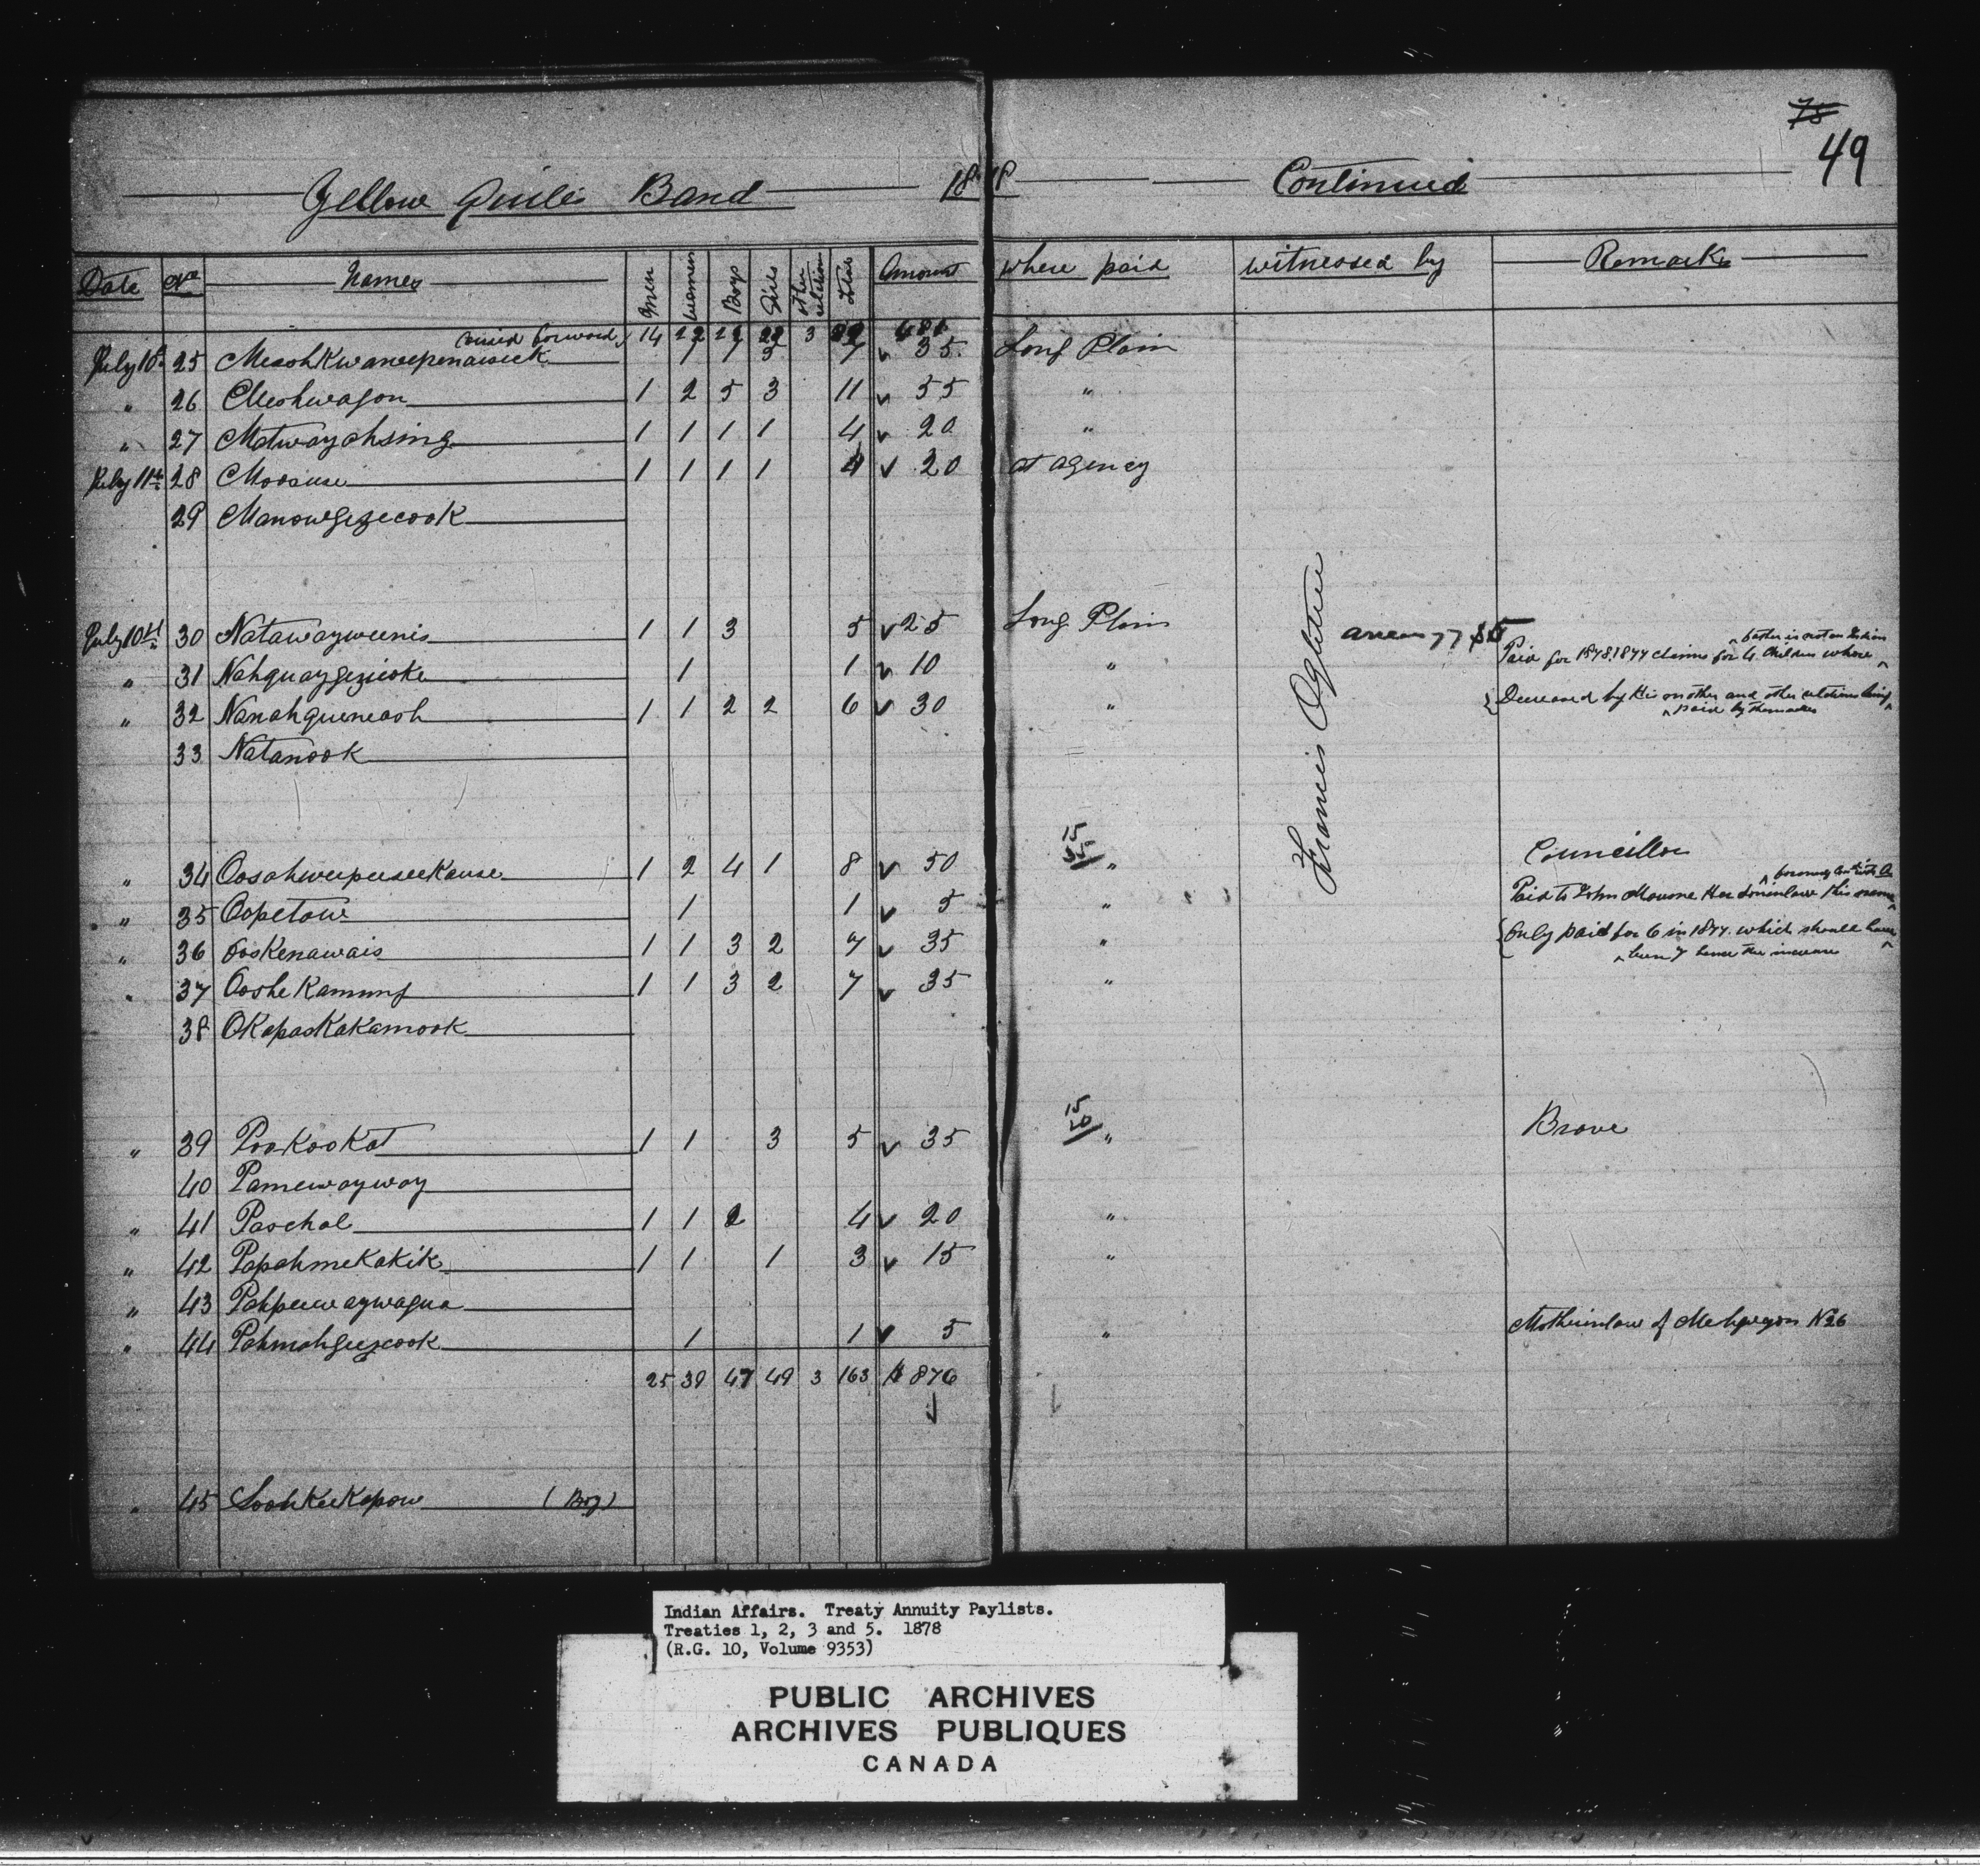 75
49
Yellow Quills Band 1878 Continued
Date No Names Men Women Boys Girls other relations Total Amount where paid witnessed by Remarks
carried forward 14 22 3
July 10th 25 Meeshkwaneepenaiseek 1 1 7 35 Long Plain
" 26 Meshwagon 1 2 5 3 11 55 "
" 27 Matwayahsing 1 1 1 1 4 20 "
July 11th 28 Moosuse 1 1 1 1 4 20 at agency
29 Manowgezecook
July 10th 30 Natawayweenis 1 1 3 5 25 Long Plain
Francis Ogletree
arrears 77 $5
" 31 Nahquaygezicoke 1 1 10 " Paid for 1878.1877 claims for 4 children whose father is not an Indian
" 32 Nanahqueneash 1 1 2 2 6 30 " Decreased by His mother and other relations being paid by themselves
33 Natanook
15
35
" 34 Oosahweepeeseekause 1 2 4 1 8 50 " Councillor
" 35 Oopetow 1 1 5 " Paid to John Her Soninlaw this
" 36 Ooskenawais 1 1 3 2 7 35 " Only paid for 6 in 1877. which should have been 7 hence the increase
" 37 Ooshekamung 1 1 3 2 7 35 "
38 Okapaskakamook
15
20
" 39 Pookookat 1 1 3 5 35 " Brave
40 Pamewayway
" 41 Paschal 1 1 2 4 20 "
" 42 Papahmekakik 1 1 1 3 15 "
" 43 Pahpeewaywagua
" 44 Pahmahgeezcook 1 1 5 " Motherinlaw of N26
25 39 47 49 3 163 $876
" 45 Sookkeekapow (Boy)
Indian Affairs. Treaty Annuity Paylists.
Treaties 1, 2, 3 and 5. 1878
(R.G. 10, Volume 9353)
PUBLIC ARCHIVES
ARCHIVES PUBLIQUES
CANADA